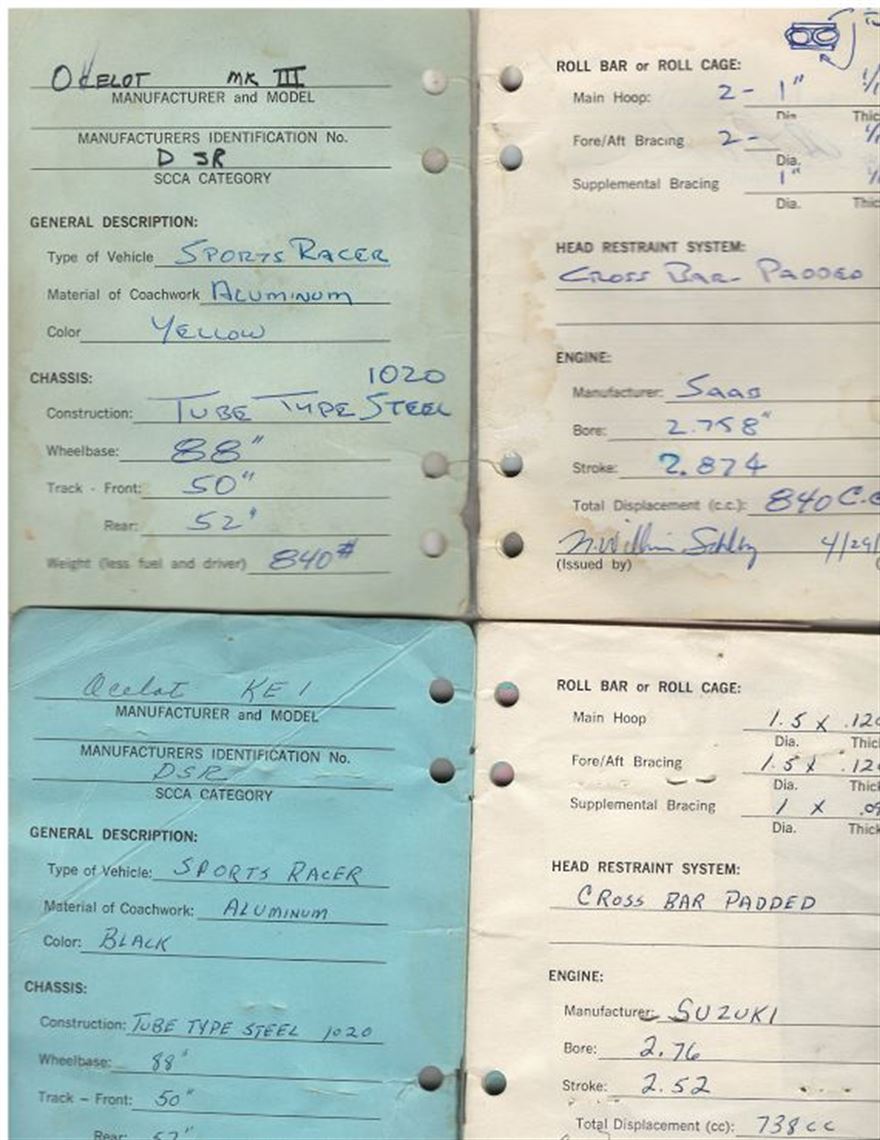 OCELOT MK III
MANUFACTURER and MODEL
MANUFACTURERS IDENTIFICATION No.
D SR
SCCA CATEGORY
GENERAL DESCRIPTION:
Type of Vehicle SPORTS RACER
Material of Coachwork ALUMINUM
Color YELLOW
CHASSIS: 1020
Construction: TUBE TYPE STEEL
Wheelbase: 88"
Track - Front: 50"
Rear: 52"
Weight (less fuel and driver) 840#
ROLL BAR or ROLL CAGE:
Main Hoop: 2- 1"
Dia. Thic
Fore/Aft Bracing 2-
Dia.
Supplemental Bracing 1"
Dia. Thick
HEAD RESTRAINT SYSTEM:
CROSS BAR- PADDED
ENGINE:
Manufacturer: SAAB
Bore: 2.758"
Stroke: 2.874
Total Displacement (c.c.): 840 C.C
4/29/
(Issued by)
Ocelot KE 1
MANUFACTURER and MODEL
MANUFACTURERS IDENTIFICATION No.
DSR
SCCA CATEGORY
GENERAL DESCRIPTION:
Type of Vehicle: SPORTS RACER
Material of Coachwork: ALUMINUM
Color: BLACK
CHASSIS:
Construction: TUBE TYPE STEEL 1020
Wheelbase: 88"
Track - Front: 50"
Rear: 52"
ROLL BAR or ROLL CAGE:
Main Hoop 1.5 x .120
Dia. Thick
Fore/Aft Bracing 1.5 x .120
Dia. Thick
Supplemental Bracing 1 x .09
Dia. Thick
HEAD RESTRAINT SYSTEM:
CROSS BAR PADDED
ENGINE:
Manufacturer: SUZUKI
Bore: 2.76
Stroke: 2.52
Total Displacement (cc): 738 cc